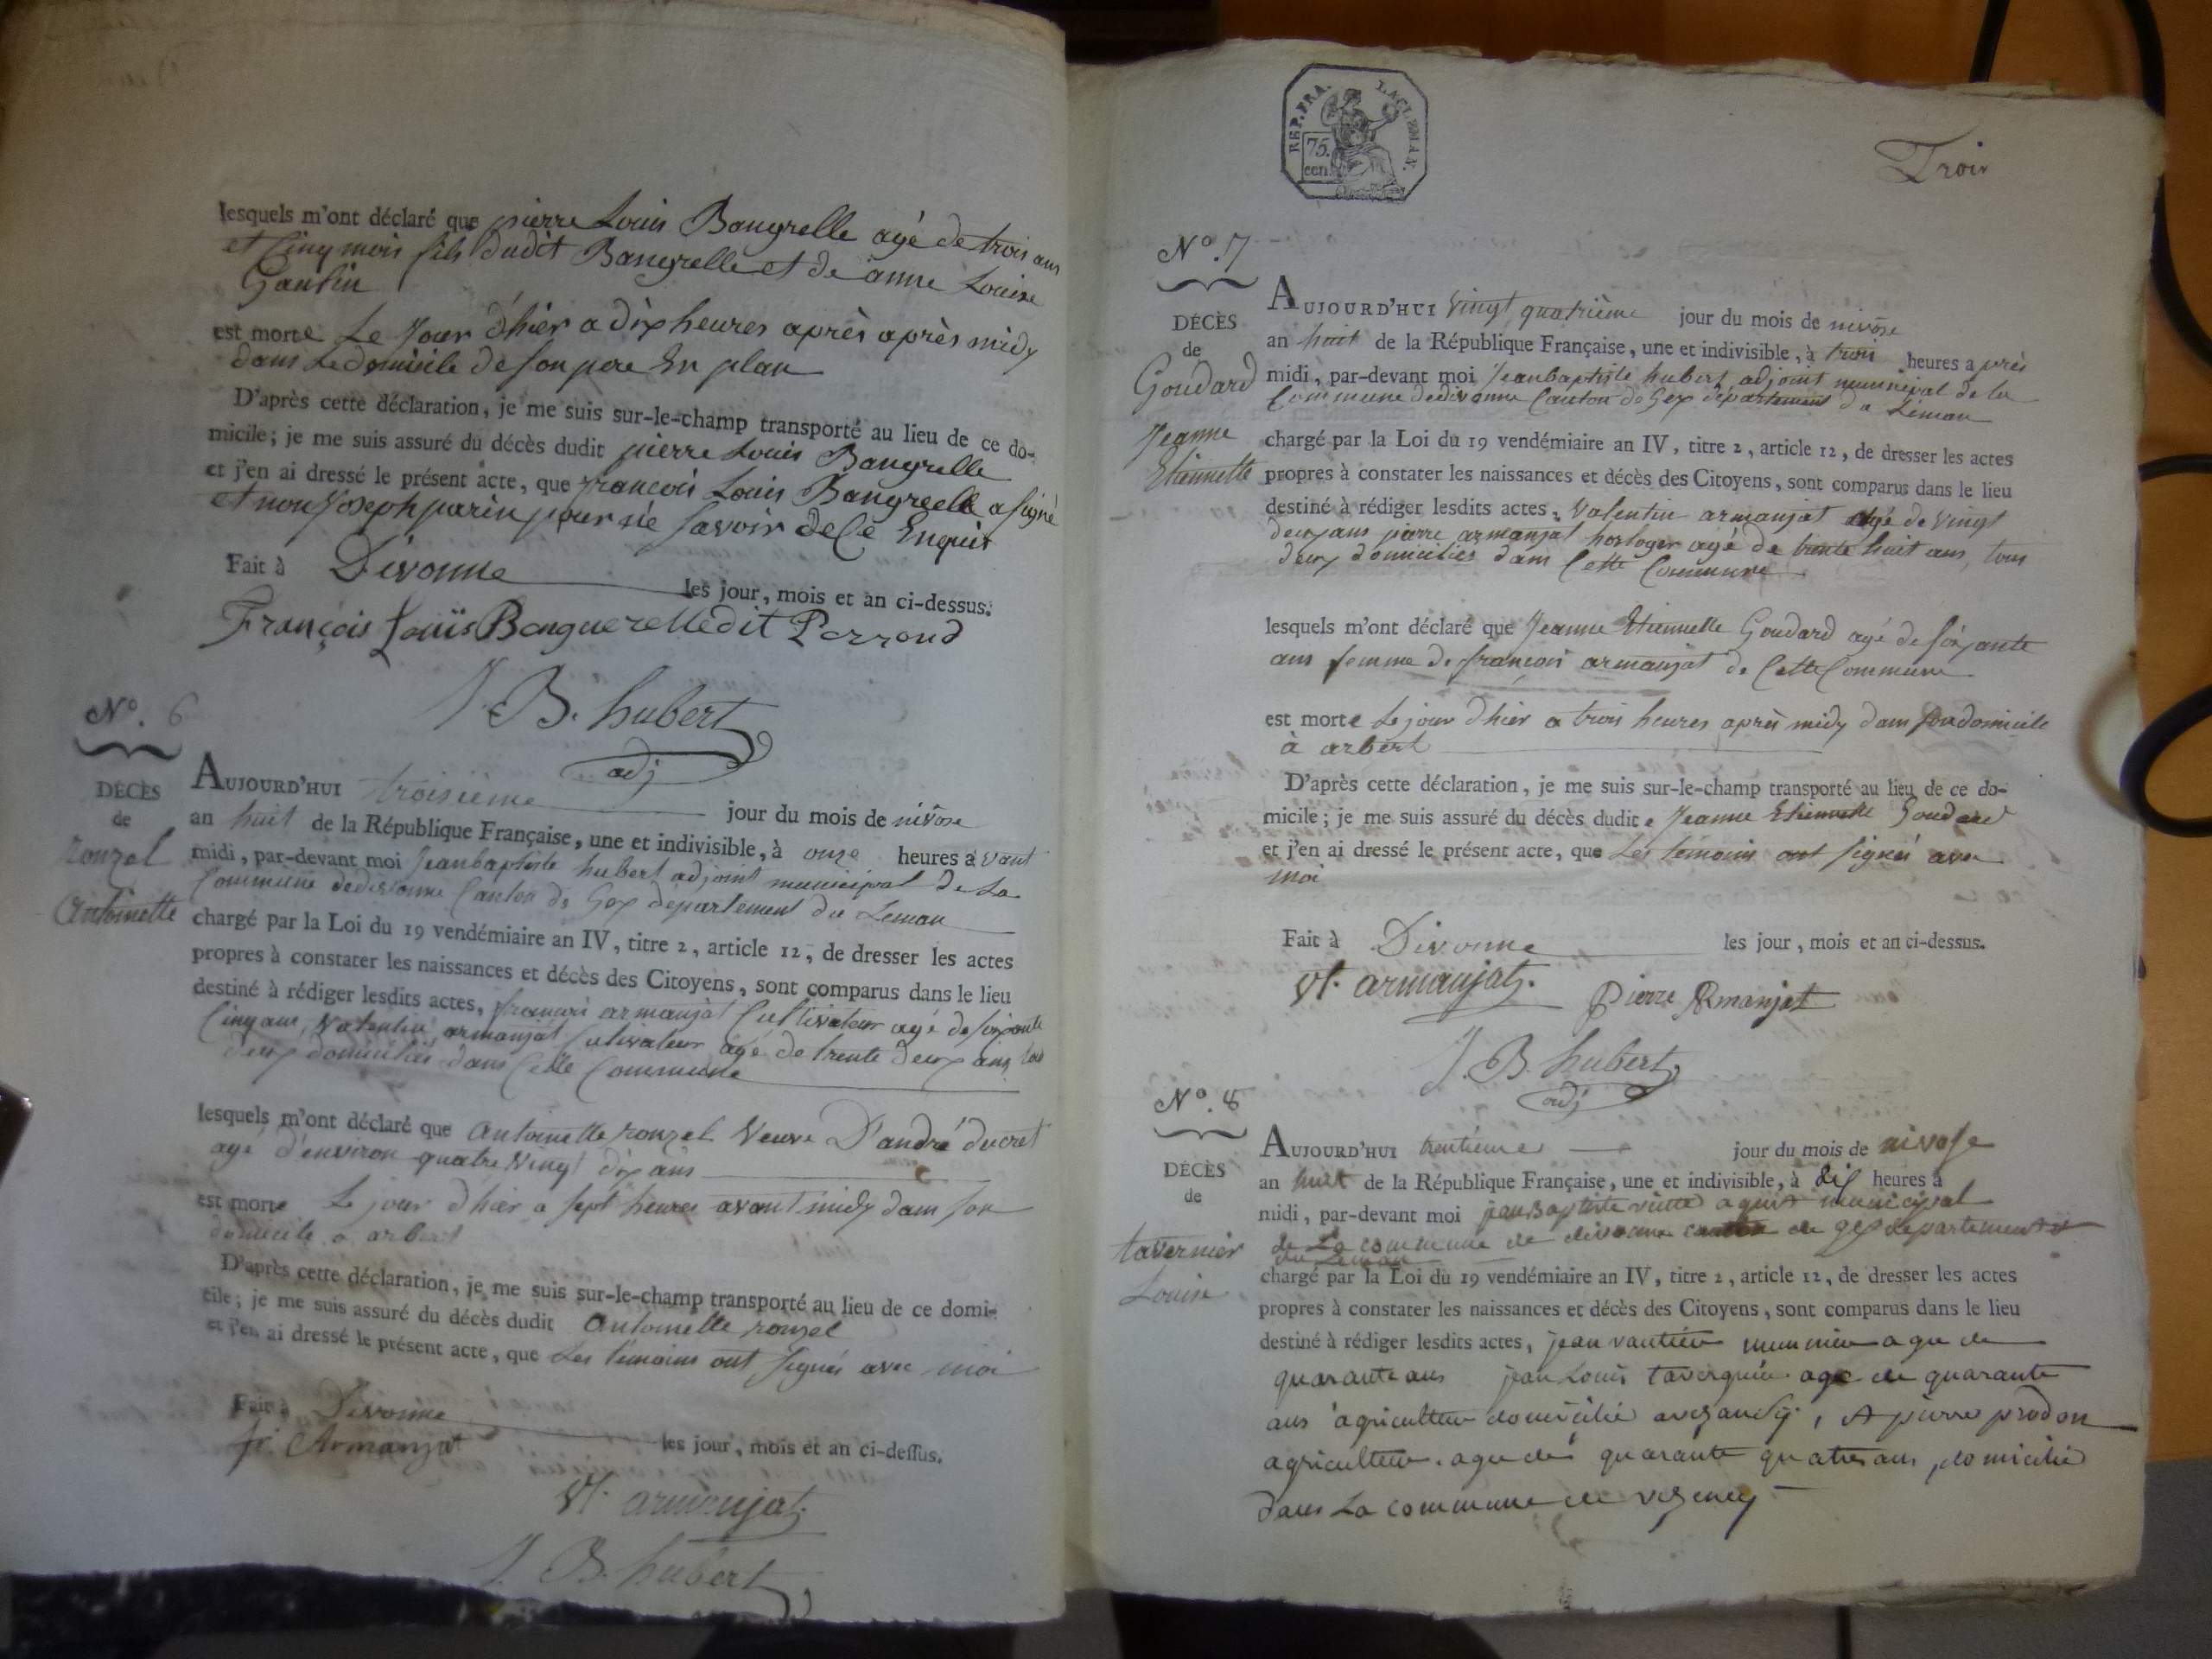 lesquels m'ont déclaré que pierre Louis Bangrelle agé de trois ans
et cinq mois fils dudit Bangrelle et de anne Louise
Gantin
est morte Le Jour d'hier a dix heures après après midy
dans Le domicile de son pere En plan
D'après cette déclaration, je me suis sur-le-champ transporté au lieu de ce do-
micile; je me suis assuré du décès dudit pierre Louis Bangrelle
et j'en ai dressé le présent acte, que françois Louis Bangrelle a signé
et non Joseph parin pour ne savoir de ce Enquis
Fait à Divonne les jour, mois et an ci-dessus.
François Louïs Banguerelle dit Perroud
J. B. hubert
adj
N°. 6
DÉCÈS
de
ronzel
Antoinette
AUJOURD'HUI troisième jour du mois de nivôse
an huit de la République Française, une et indivisible, à onze heures avant
midi, par-devant moi Jeanbaptiste hubert adjoint municipal de La
Commune dedivonne Canton de Gex département du Leman
chargé par la Loi du 19 vendémiaire an IV, titre 2, article 12, de dresser les actes
propres à constater les naissances et décès des Citoyens, sont comparus dans le lieu
destiné à rédiger lesdits actes, françois armanjat Cultivateur agé de soixante
Cinq ans, Valentin armanjat Cultivateur agé de trente deux ans, tous
deux domiciliés dans Cette Commune
lesquels m'ont déclaré que Antoinette ronzel Veuve D'andré ducret
agé d'environ quatre Vingt dix ans
est morte Le jour d'hier a sept heures avant midy dans son
domicile a arbert
D'après cette déclaration, je me suis sur-le-champ transporté au lieu de ce domi-
cile; je me suis assuré du décès dudit Antoinette ronzel
et j'en ai dressé le présent acte, que Les témoins ont signés avec moi
Fait à Divonne les jour, mois et an ci-dessus.
fr. Armanjat
Vt. armanjat
J. B. hubert
REP. FRA.
75.
cen.
Trois
N°. 7
DÉCÈS
de
Goudard
Jeanne
Etiennette
AUJOURD'HUI Vingt quatrième jour du mois de nivôse
an huit de la République Française, une et indivisible, à trois heures après
midi, par-devant moi Jeanbaptiste hubert adjoint municipal de la
Commune dedivonne Canton de Gex département du Léman
chargé par la Loi du 19 vendémiaire an IV, titre 2, article 12, de dresser les actes
propres à constater les naissances et décès des Citoyens, sont comparus dans le lieu
destiné à rédiger lesdits actes, Valentin armanjat agé de Vingt
deux ans pierre armanjat horloger agé de trente huit ans, tous
deux domiciliés dans Cette Commune
lesquels m'ont déclaré que Jeanne Etiennette Goudard agé de soixante
ans femme de françois armanjat de Cette Commune
est morte Le jour d'hier a trois heures après midy dans son domicile
à arbert
D'après cette déclaration, je me suis sur-le-champ transporté au lieu de ce do-
micile; je me suis assuré du décès dudite Jeanne Etiennette Goudard
et j'en ai dressé le présent acte, que Les témoins ont signés avec
moi
Fait à Divonne les jour, mois et an ci-dessus.
Vt. armanjat.
Pierre Armanjat
J. B. hubert
adj
N°. 8
DÉCÈS
de
tavernier
Louise
AUJOURD'HUI trentieme jour du mois de nivose
an huit de la République Française, une et indivisible, à dis heures à
midi, par-devant moi jean Baptiste agent municipal
de La commune de divonne canton de gex departement
du Leman
chargé par la Loi du 19 vendémiaire an IV, titre 2, article 12, de dresser les actes
propres à constater les naissances et décès des Citoyens, sont comparus dans le lieu
destiné à rédiger lesdits actes, jean vantier munnier a gee de
quarante ans jean Louis tavergnier age de quarante
ans agriculteur domicilié , et pierre prodon
agriculteur. agee de quarante quatre ans, domicilie
dans La commune de vezency